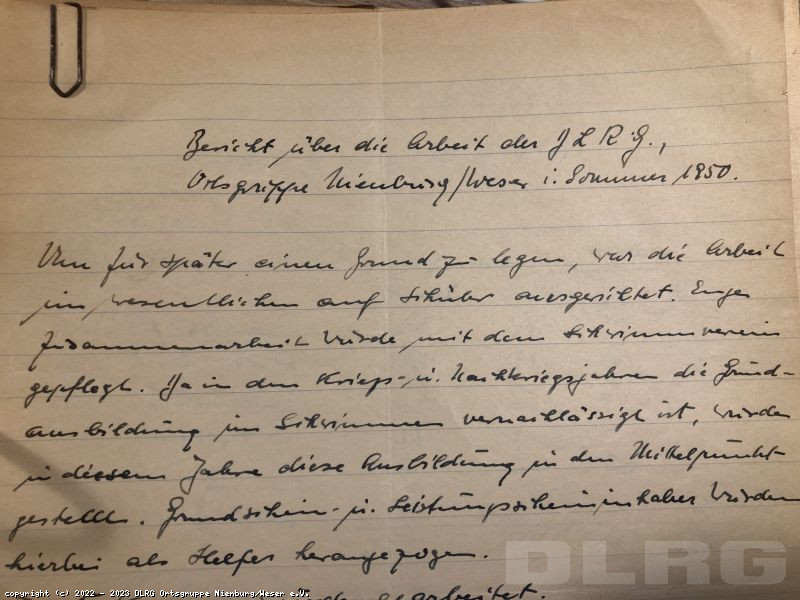 Bericht über die Arbeit der D L R G.,
Ortsgruppe Nienburg/Weser i. Sommer 1950.
Um für später einen Grund zu legen, war die Arbeit
im wesentlichen auf Schüler ausgerichtet. Enge
Zusammenarbeit wurde mit dem Schwimmverein
gepflegt. Da in den Kriegs- u. Nachkriegsjahren die Grund-
ausbildung im Schwimmen vernachlässigt ist, wurde
in diesem Jahre diese Ausbildung in den Mittelpunkt
gestellt. Grundschein- u. Leistungsscheininhaber wurden
hierbei als Helfer herangezogen.
gearbeitet.
DLRG
copyright (c) 2022 - 2023 DLRG Ortsgruppe Nienburg/Weser e.V.